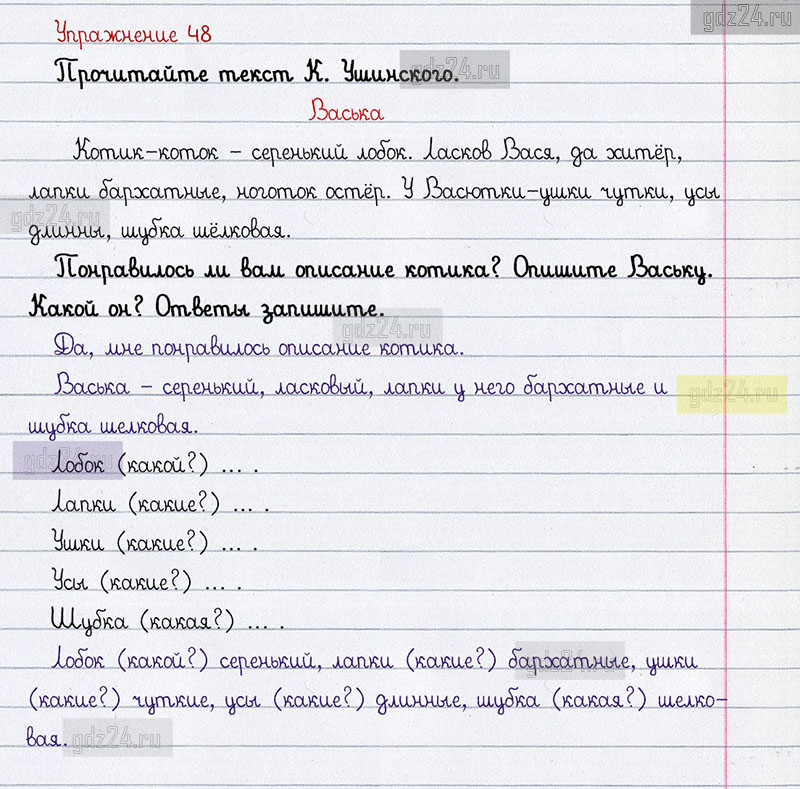 gdz24.ru
Упражнение 48
Прочитайте текст К. Ушинского.
gdz24.ru
Васька
Котик-коток – серенький лобок. Ласков Вася, да хитёр,
лапки бархатные, ноготок остёр. У Васютки-ушки чутки, усы
gdz24.ru
длинны, шубка шёлковая.
Понравилось ли вам описание котика? Опишите Ваську.
Какой он? Ответы запишите.
gdz24.ru
Да, мне понравилось описание котика.
Васька – серенький, ласковый, лапки у него бархатные и
gdz24.ru
шубка шелковая.
gdz24.ru
Лобок (какой?) ... .
Лапки (какие?) ... .
Ушки (какие?) ... .
Усы (какие?) ... .
Шубка (какая?) ... .
Лобок (какой?) серенький, лапки (какие?) бархатные, ушки
gdz24.ru
(какие?) чуткие, усы (какие?) длинные, шубка (какая?) шелко-
вая.
gdz24.ru